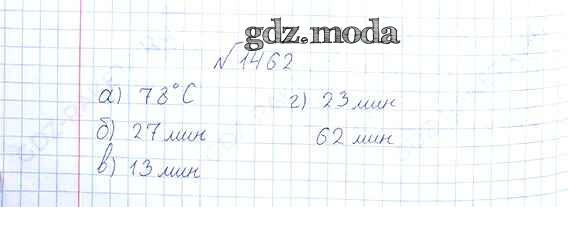 gdz.moda
№1462
а) 78°C
б) 27 мин
в) 13 мин
г) 23 мин
62 мин